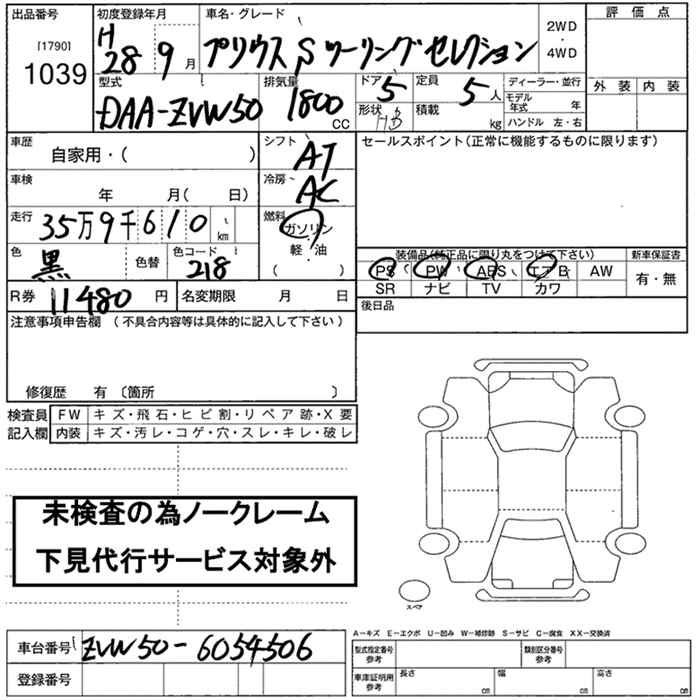 出品番号 初度登録年月 車名・グレード 2WD・4WD 評価点
[1790]
1039 H28 9月 プリウス Sツーリングセレクション
型式 排気量 ドア 定員 ディーラー・並行 外装 内装
DAA-ZVW50 1800 CC 5 5人 モデル年式 年
形状 HB 積載 kg ハンドル 左・右
車歴 シフト セールスポイント(正常に機能するものに限ります)
自家用・( ) AT
車検 冷房 AC
年 月( 日)
走行 燃料
35万9千610 km ガソリン
軽油
( )
色 色替 色コード 装備品(純正品に限り丸をつけて下さい) 新車保証書
黒 218 PS PW ABS エアB AW 有・無
SR ナビ TV カワ
R券 11480円 名変期限 月 日 後日品
注意事項申告欄 (不具合内容等は具体的に記入して下さい)
修復歴 有 〔箇所 〕
検査員 FW キズ・飛石・ヒビ割・リペア跡・X要
記入欄 内装 キズ・汚レ・コゲ・穴・スレ・キレ・破レ
未検査の為ノークレーム
下見代行サービス対象外
スペア
A-キズ E-エクボ U-凹み W-補修跡 S-サビ C-腐食 XX-交換済
車台番号 ZVW50-6054506 型式指定番号 参考 類別区分番号 参考
登録番号 車庫証明用 参考 長さ cm 幅 cm 高さ cm